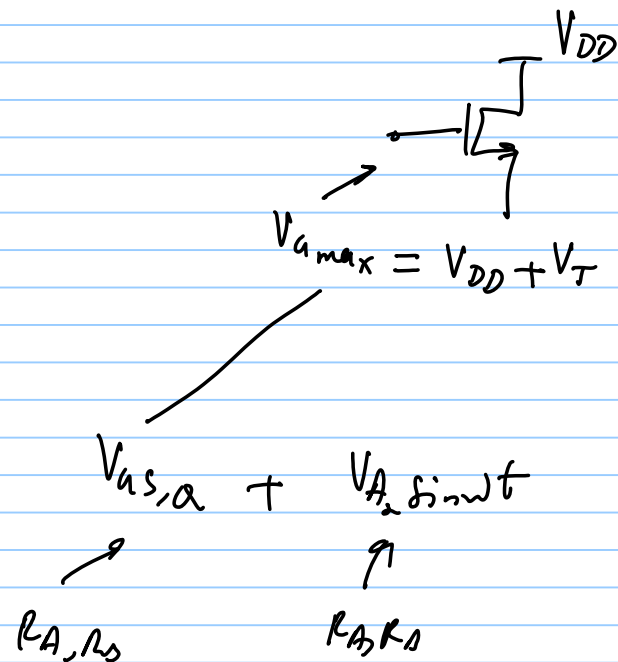 V_DD
V_Gmax = V_DD + V_T
V_GS,Q + V_A sin ωt
R_A, R_S R_A, R_S